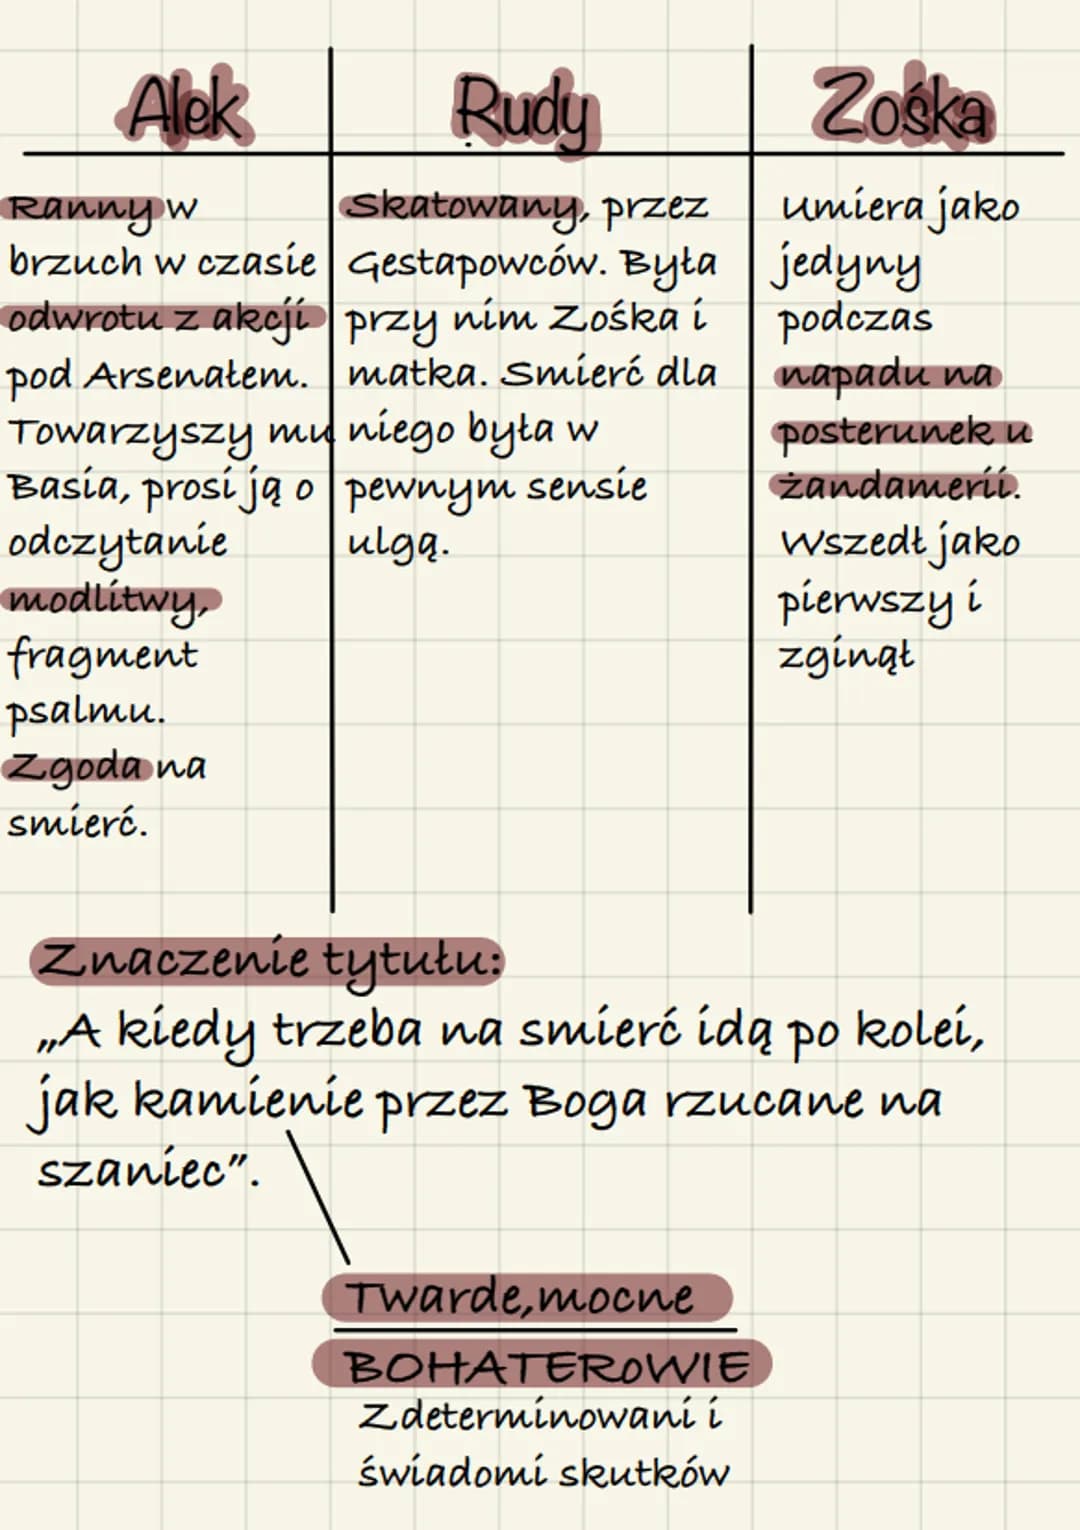 Alek
Rudy
Zośka
Ranny w
brzuch w czasie
odwrotu z akcji
pod Arsenałem.
Towarzyszy mu
Basia, prosi ją o
odczytanie
modlitwy,
fragment
psalmu.
Zgoda na
smierć.
Skatowany, przez
Gestapowców. Była
przy nim Zośka i
matka. Smierć dla
niego była w
pewnym sensie
ulgą.
Umiera jako
jedyny
podczas
napadu na
posterunek u
żandamerii.
Wszedł jako
pierwszy i
zginął
Znaczenie tytułu:
„A kiedy trzeba na smierć idą po kolei,
jak kamienie przez Boga rzucane na
szaniec”.
Twarde,mocne
BOHATERoWIE
Zdeterminowani i
świadomi skutków